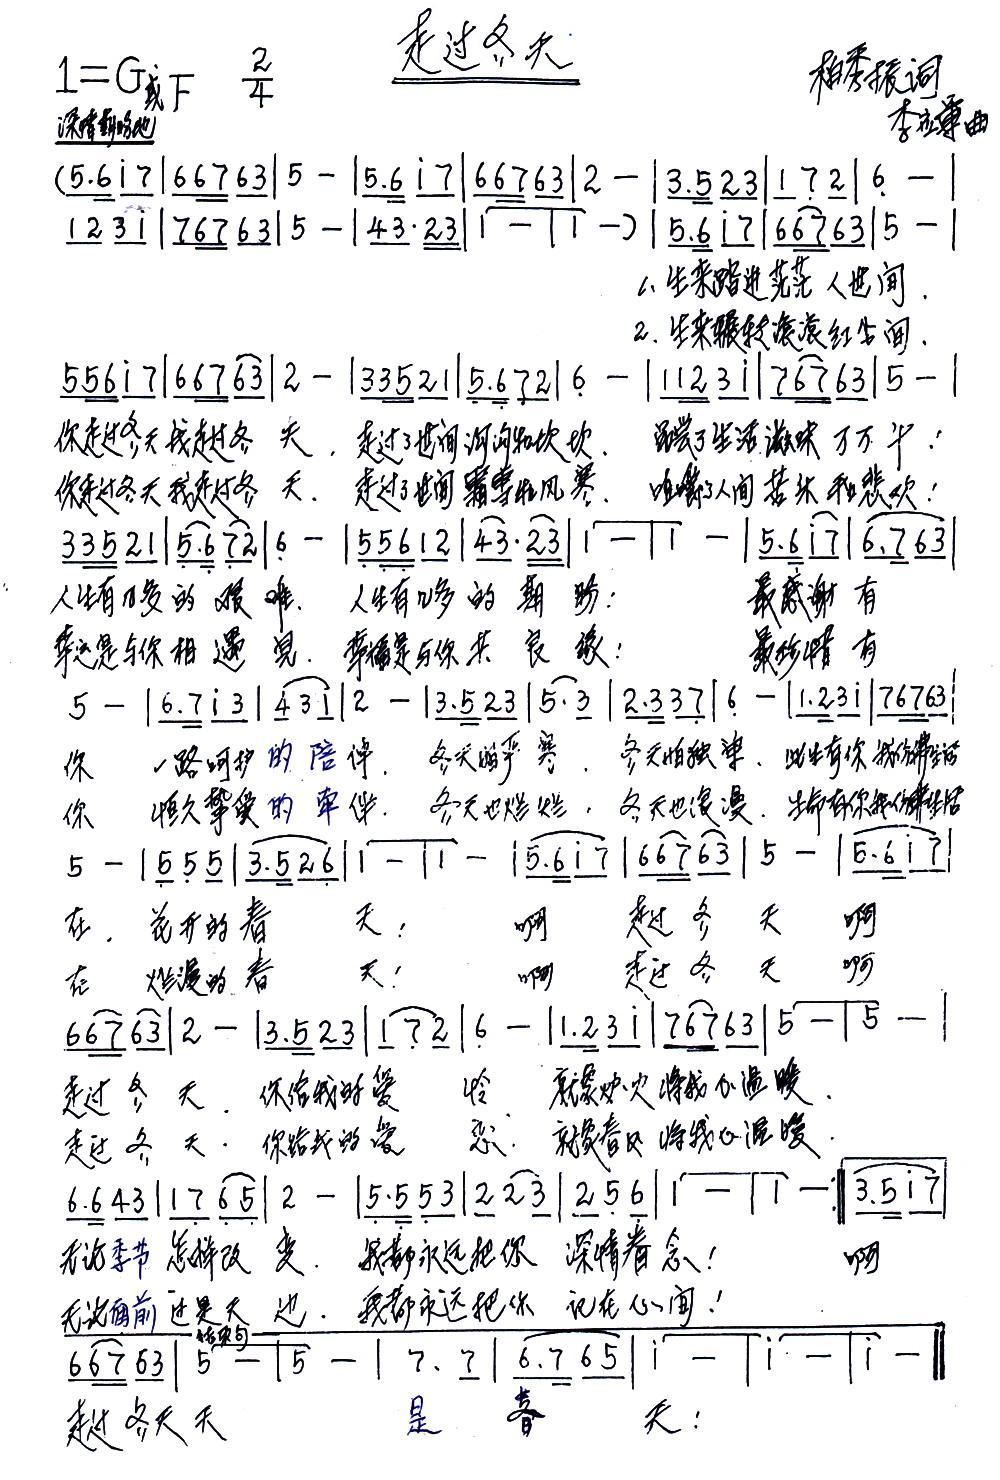 走过冬天
1=G或F 2/4
柏秀振词
李立尊曲
深情期盼地
(5.6i7|66763|5-|5.6i7|66763|2-|3.523|172|6-|
123i|76763|5-|43.23|1-|1-)|5.6i7|66763|5-|
1、生来踏进茫茫人世间.
2.生来辗转滚滚红尘间.
556i7|66763|2-|33521|5.672|6-|1123i|76763|5-|
你走过冬天我走过冬天.走过了世间沟沟和坎坎.品尝了生活滋味万万千!
你走过冬天我走过冬天.走过了世间霜雪和风寒.咀嚼了人间苦坏和悲欢!
33521|5.672|6-|55612|43.23|1-|1-|5.6i7|6.763|
人生有几多的艰难.人生有几多的期盼!最感谢有
幸运是与你相遇见.幸福是与你共良缘!最珍惜有
5-|6.7i3|43i|2-|3.523|5.3|2.337|6-|1.23i|76763|
你一路呵护的陪伴.冬天的严寒.冬天怕独单.此生有你我仿佛生活
你恒久挚爱的牵伴.冬天也烂烂.冬天也浪漫.生命有你我仿佛生活
5-|555|3.526|1-|1-|5.6i7|66763|5-|5.6i7|
在.花开的春天!啊走过冬天啊
在烂漫的春天!啊走过冬天啊
66763|2-|3.523|172|6-|1.23i|76763|5-|5-|
走过冬天.你给我的爱怜.就象炉火将我心温暖.
走过冬天.你给我的爱恋.就象春风将我心温暖.
6.643|1765|2-|5.553|223|256|1-|1-:‖3.5i7|
无论季节怎样改变.我都永远把你深情眷念!啊
无论面前还是天边.我都永远把你记在心间!
结束句
66763|5-|5-|7.7|6.765|i-|i-|i-‖
走过冬天天是春天!